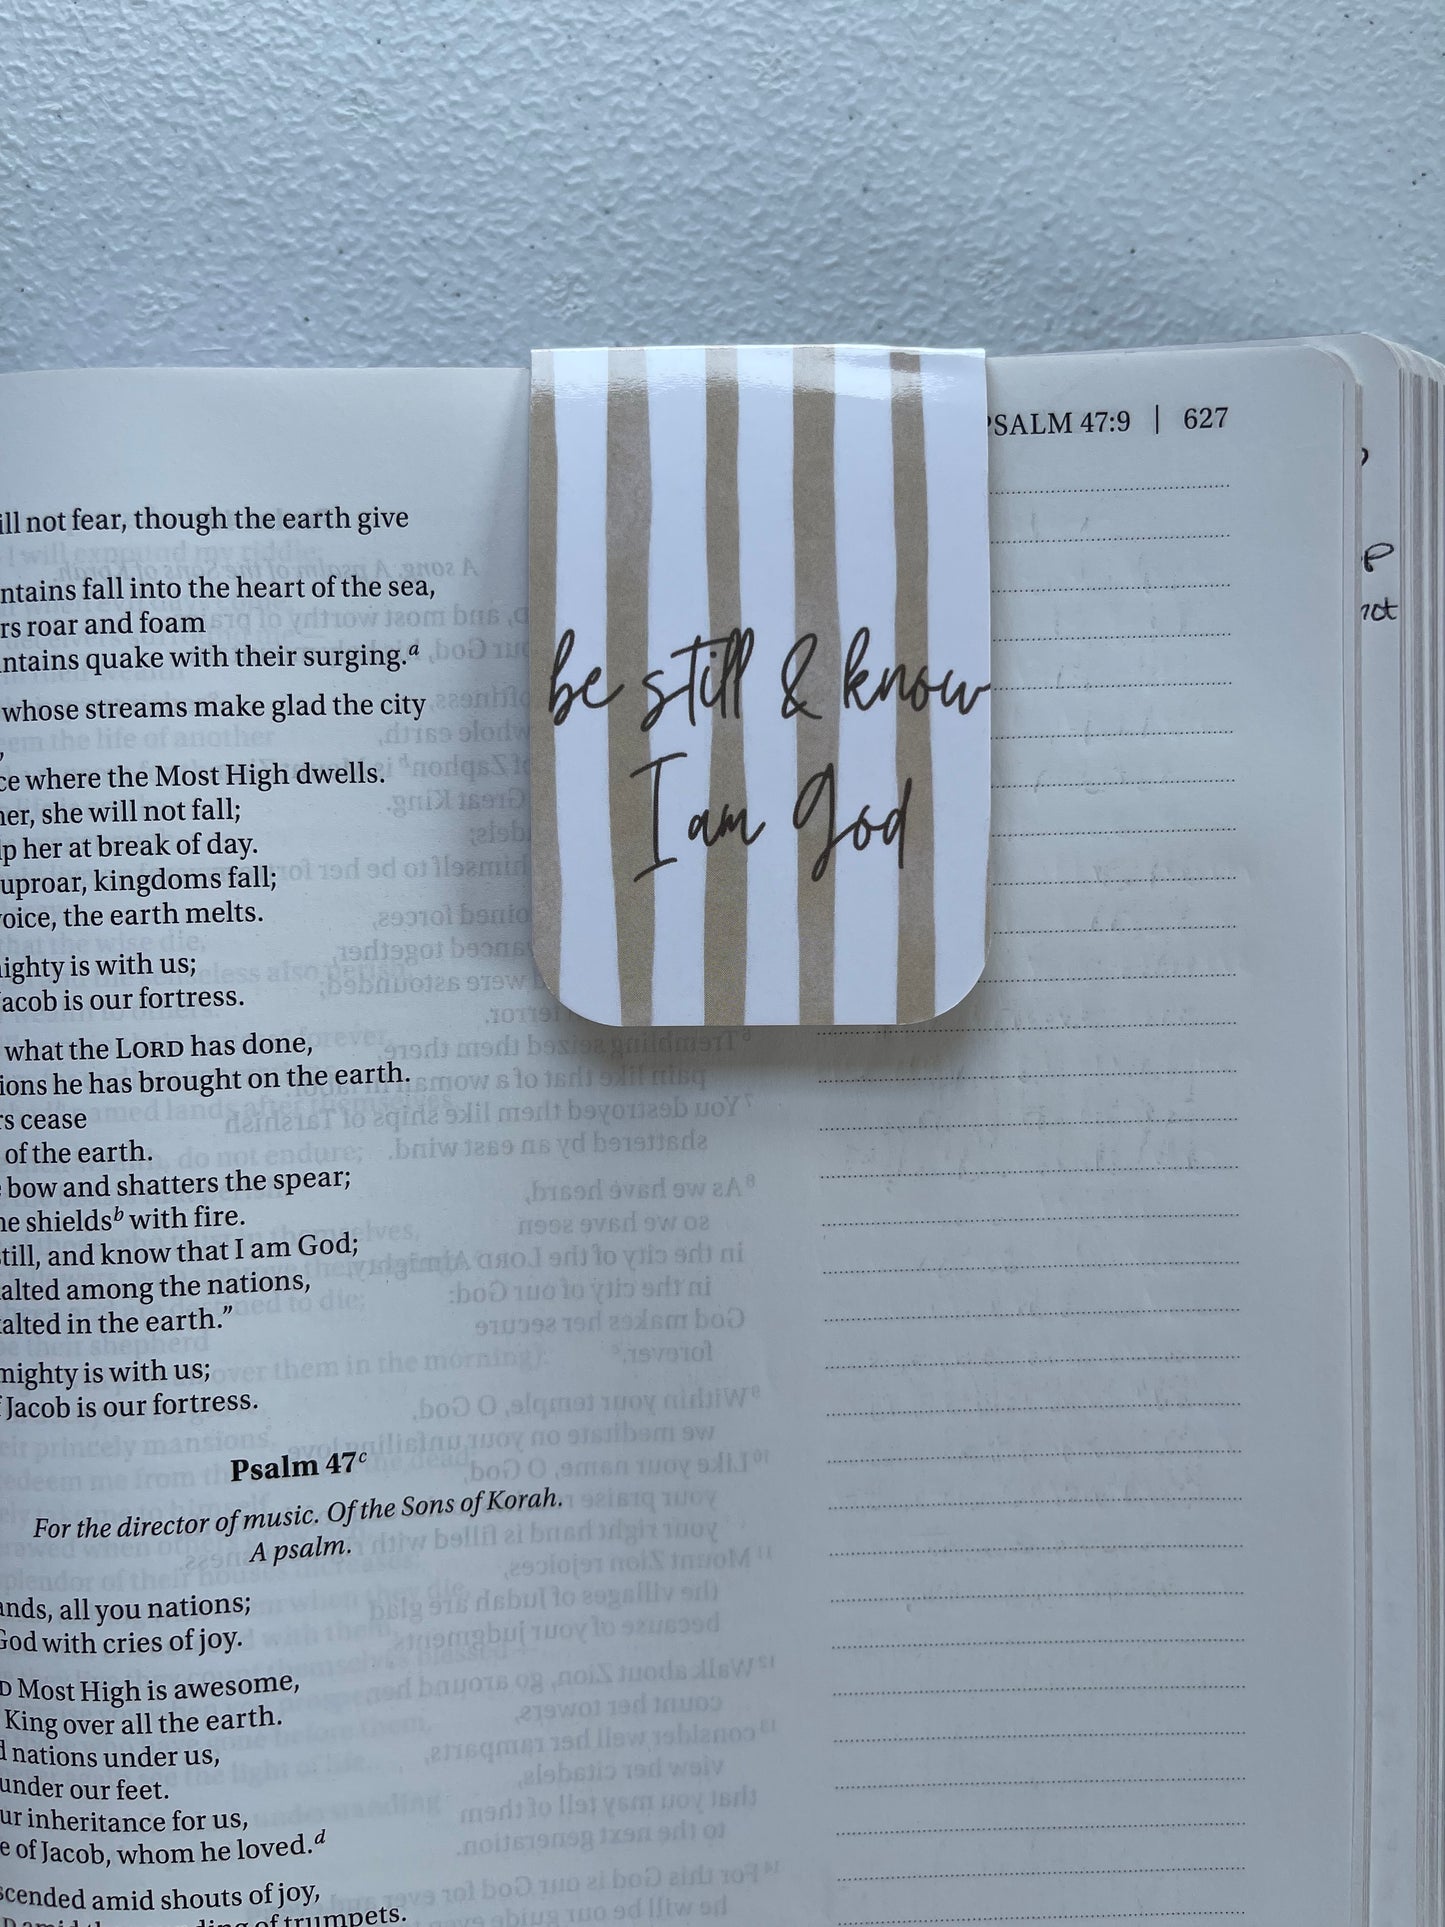 PSALM 47:9 | 627
be still & know
I am God
ill not fear, though the earth give
ntains fall into the heart of the sea,
rs roar and foam
ntains quake with their surging.a
whose streams make glad the city
,
ce where the Most High dwells.
her, she will not fall;
lp her at break of day.
uproar, kingdoms fall;
voice, the earth melts.
mighty is with us;
Jacob is our fortress.
what the LORD has done,
ions he has brought on the earth.
rs cease
of the earth.
e bow and shatters the spear;
he shieldsb with fire.
still, and know that I am God;
alted among the nations,
xalted in the earth.”
mighty is with us;
f Jacob is our fortress.
Psalm 47c
For the director of music. Of the Sons of Korah.
A psalm.
ands, all you nations;
God with cries of joy.
D Most High is awesome,
King over all the earth.
d nations under us,
under our feet.
ur inheritance for us,
e of Jacob, whom he loved.d
scended amid shouts of joy,
of trumpets.